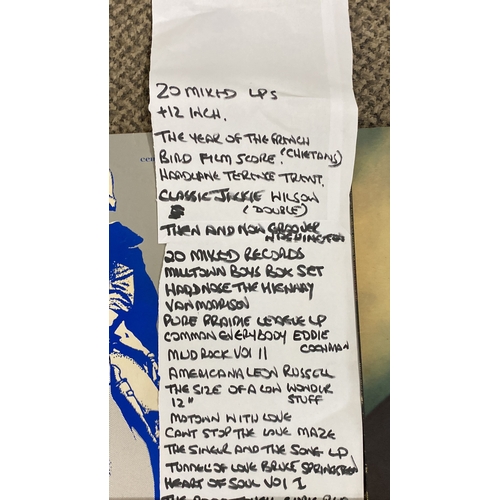 20 MIXED LPS
+12 INCH.
THE YEAR OF THE FRENCH
BIRD FILM SCORE. (CHIETANS)
HARDLANE TERENCE TRENT.
CLASSIC JACKIE WILSON
(DOUBLE)
THEN AND NOW GROOVER
WASHINGTON
20 MIXED RECORDS
MILLTOWN BOYS BOX SET
HARDNOSE THE HIGHWAY
VAN MORRISON
PURE PRAIRIE LEAGUE LP
COMMON EVERYBODY EDDIE
COCHMAN
MUD ROCK VOL II
AMERICANA LEON RUSSELL
THE SIZE OF A COW WONDER
12" STUFF
MOTOWN WITH LOVE
CANT STOP THE LOVE MAZE
THE SINGER AND THE SONG LP
TUNNEL OF LOVE BRUCE SPRINGSTEEN
HEART OF SOUL VOL 1